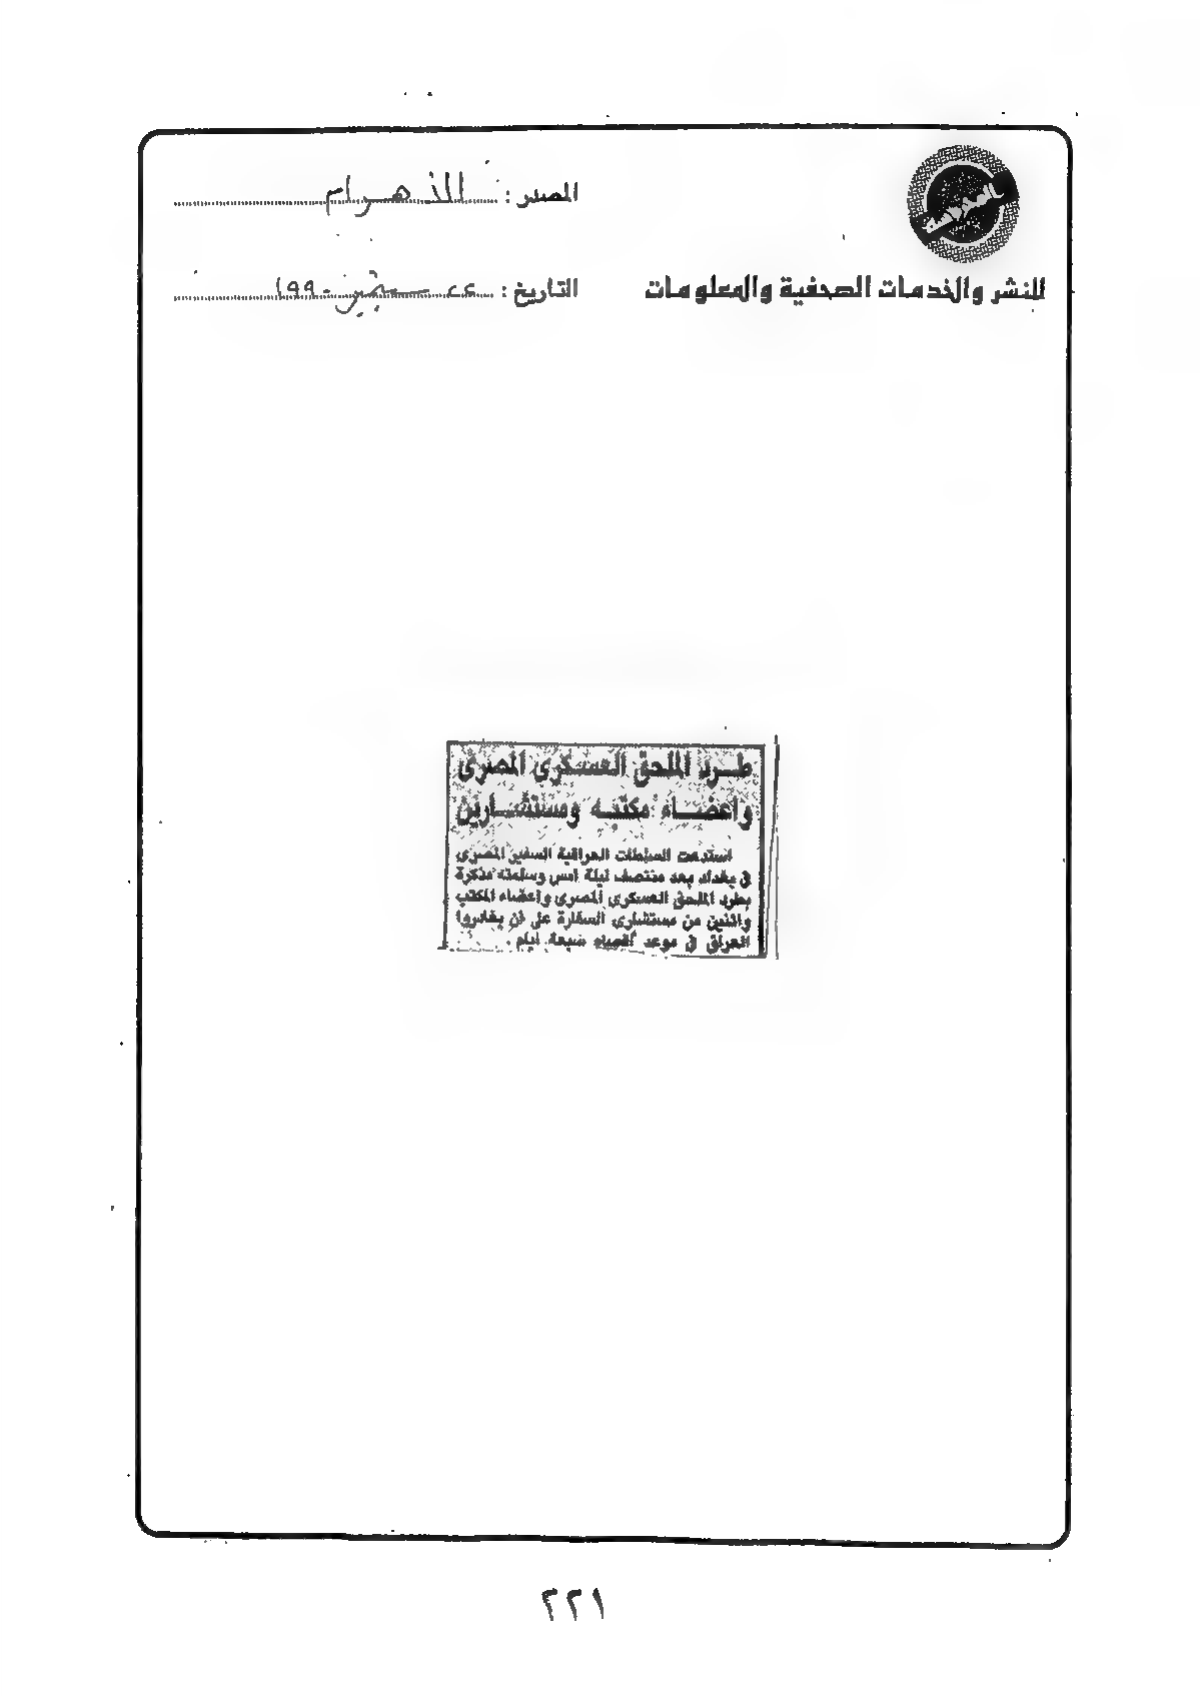 المصدر : الأهرام
للنشر والخدمات الصحفية والمعلومات
التاريخ : ٢٢ سبتمبر ١٩٩٠
طرد الملحق العسكرى المصرى
واعضاء مكتبه ومستشارين
استدعت السلطات العراقية السفير المصرى
فى بغداد بعد منتصف ليلة امس وسلمته مذكرة
بطرد الملحق العسكرى المصرى واعضاء المكتب
واثنين من مستشارى السفارة على ان يغادروا
العراق فى موعد أقصاه سبعة ايام .
٢٢١